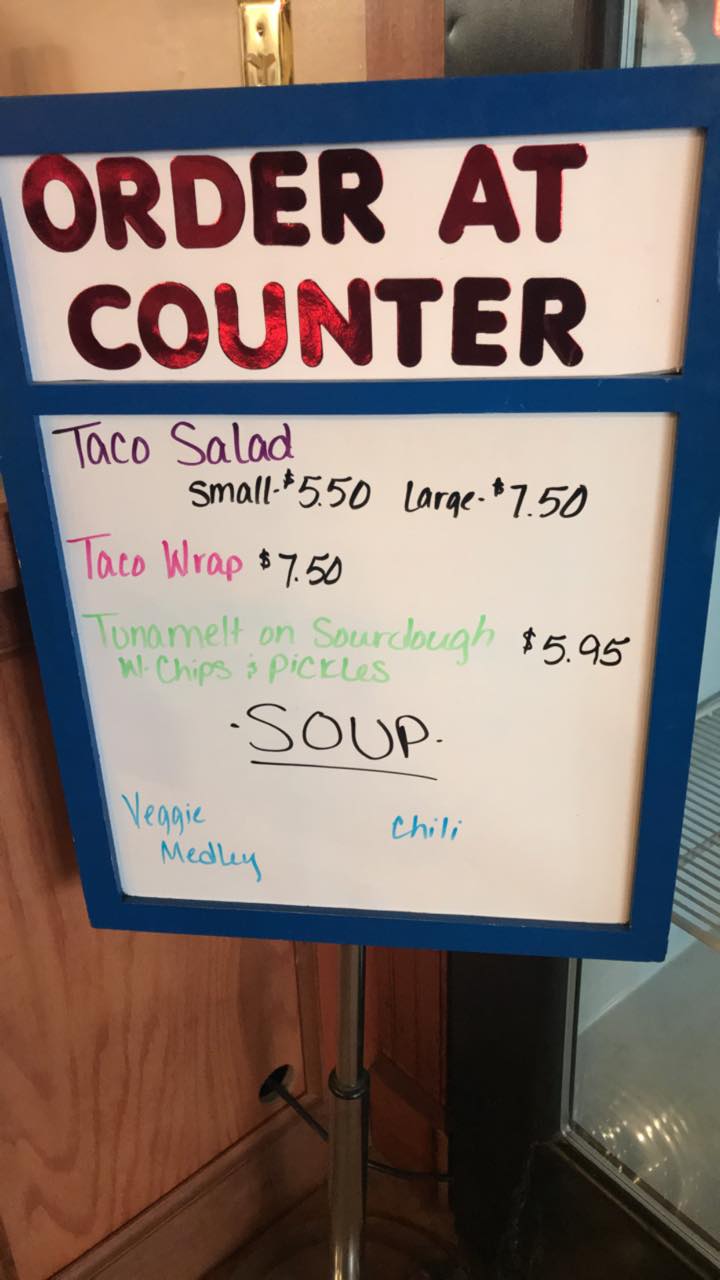 ORDER AT
COUNTER
Taco Salad
Small-$5.50 Large-$7.50
Taco Wrap $7.50
Tunamelt on Sourdough $5.95
W-Chips & PiCKLes
·SOUP·
Veggie Chili
Medley